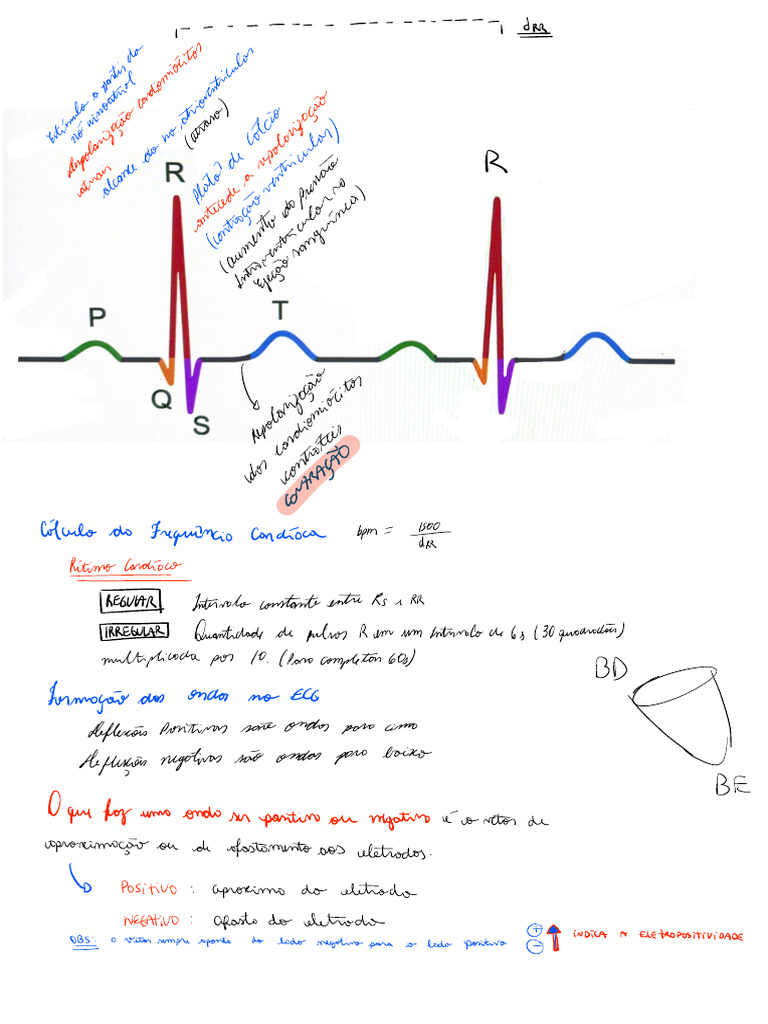 dRR
Estímulo a partir do
nó sinoatrial
despolarização cardiomiócitos
atriais
alcance do no atrioventricular
(atraso)
Platô de Cálcio
antecede a repolarização
(contração ventricular)
(aumento da Pressão
Intraventricular no
Ejeção sanguínea)
R
R
P
T
Q
S
repolarização
dos cardiomiócitos
contráteis
CONTRAÇÃO
Cálculo da Frequência Cardíaca bpm = 1500
dRR
Rítimo Cardíaco
REGULAR Intervalo constante entre Rs e RR
IRREGULAR Quantidade de pulsos R em um intervalo de 6s (30 quadradões)
multiplicada por 10. (Para completar 60s)
BD
Formação das ondas no ECG
Deflexões Positivas são ondas para cima
Deflexões negativas são ondas para baixo
BE
O que faz uma onda ser positiva ou negativa é o vetor de
aproximação ou de afastamento aos eletrodos.
POSITIVO: aproxima do eletrodo
NEGATIVO: afasta do eletrodo
OBS: o vetor sempre aponta do lado negativo para o lado positivo + - INDICA A ELETROPOSITIVIDADE